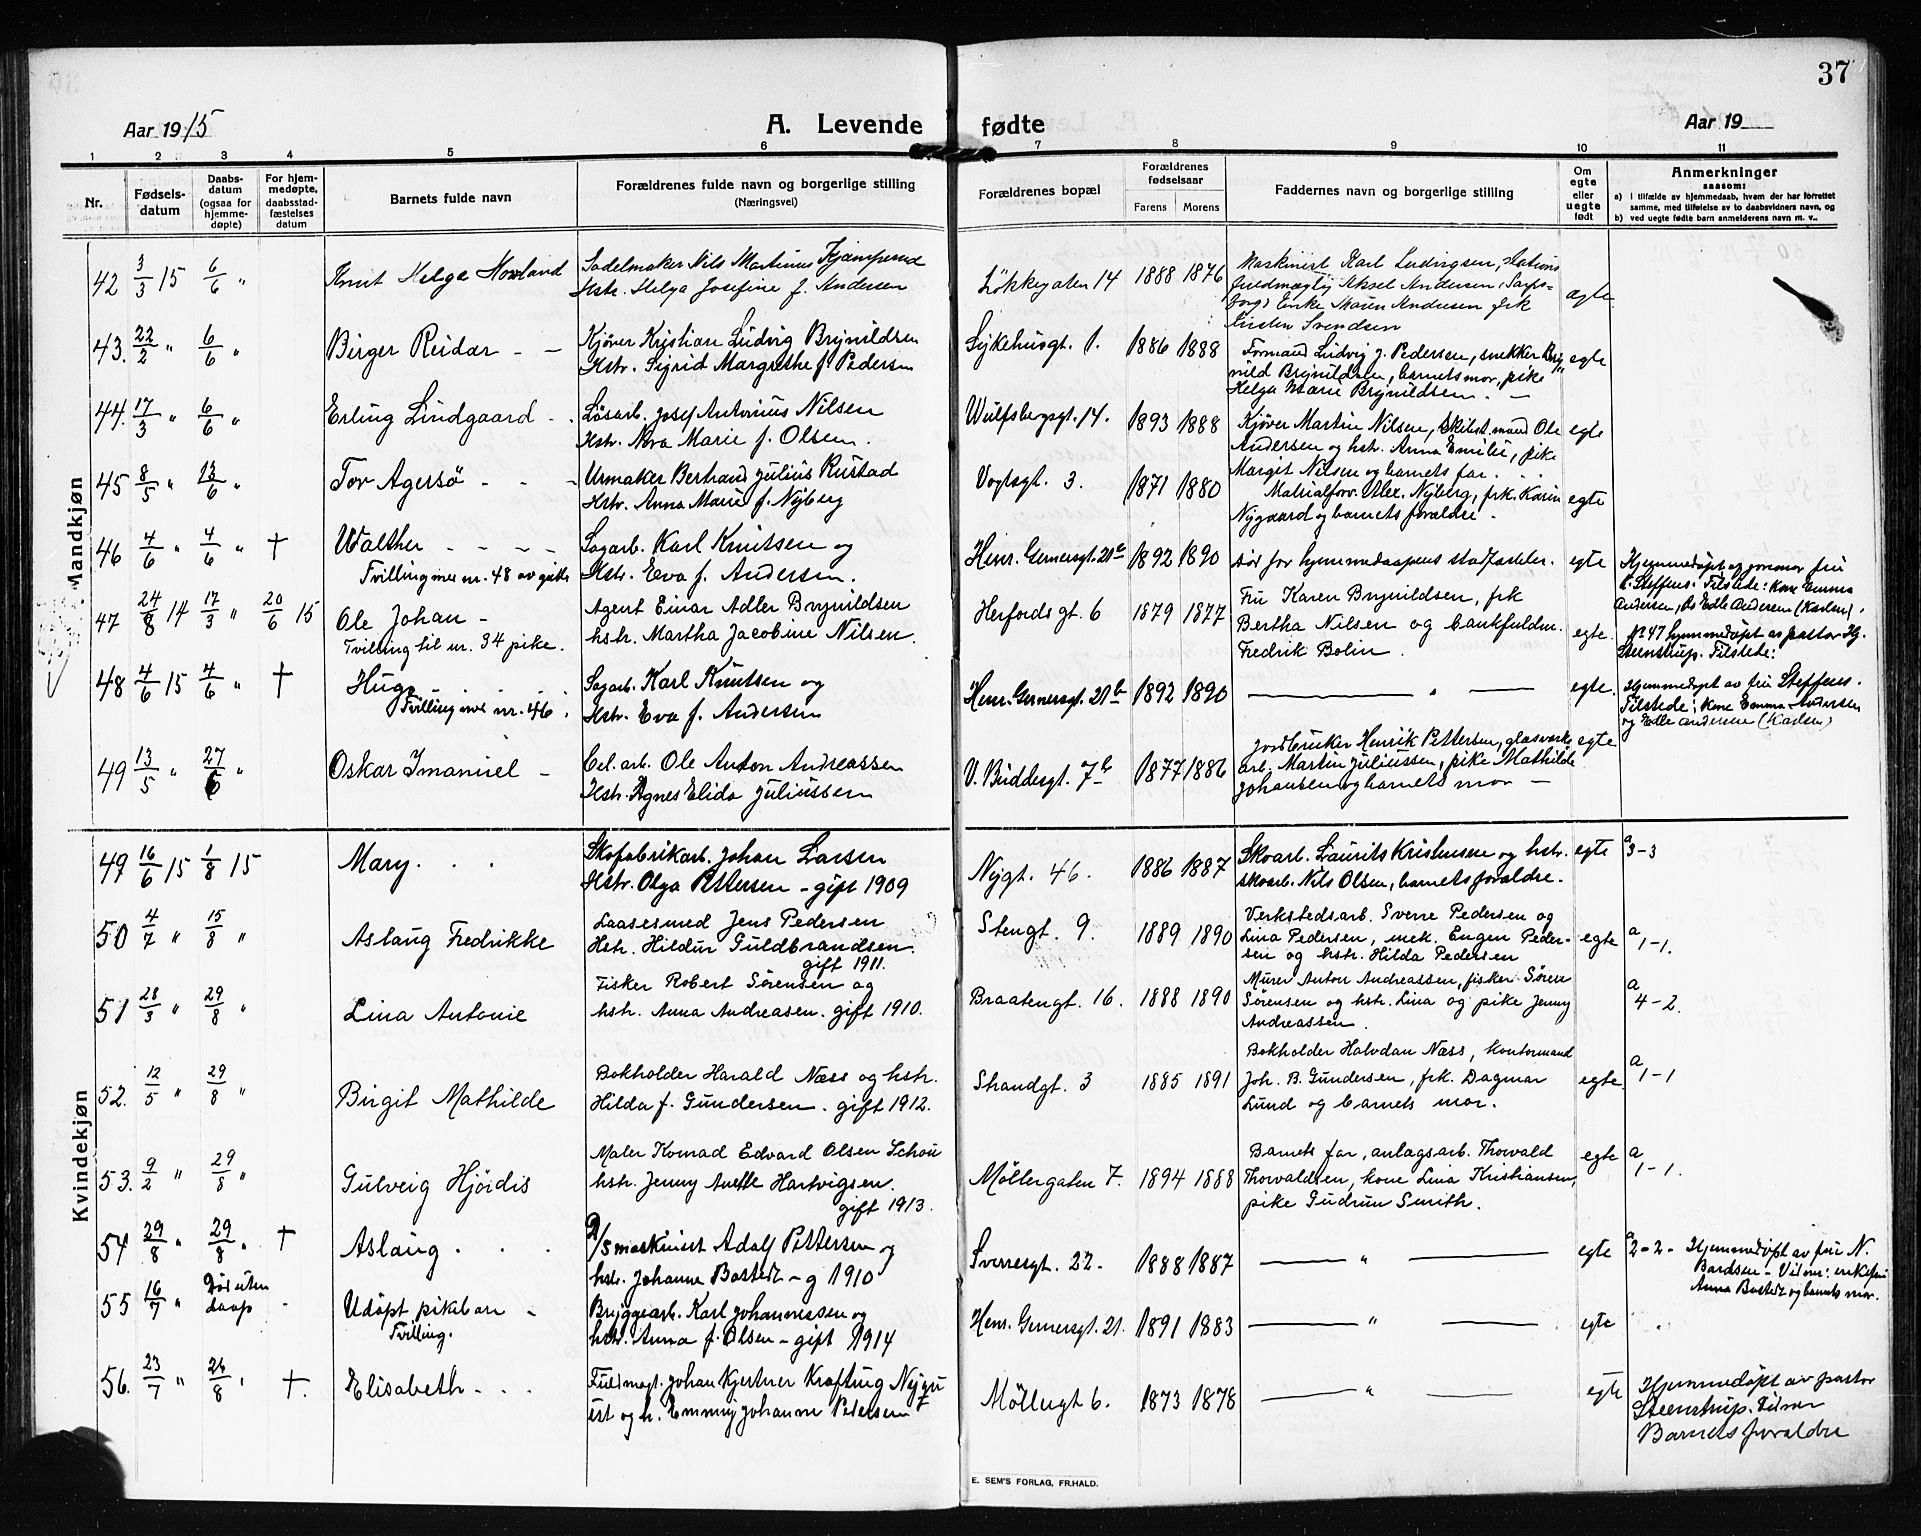 37
Aar 1915 A. Levende fødte Aar 19
1 2 3 4 5 6 7 8 9 10 11
Nr.
Fødsels-
datum
Daabs-
datum
(ogsaa for
hjemme-
døpte)
For hjem-
medøpte,
daabsstad-
fæstelses
datum
Barnets fulde navn
Forældrenes fulde navn og borgerlige stilling
(Næringsvei)
Forældrenes bopæl
Forældrenes
fødselsaar
Farens Morens
Faddernes navn og borgerlige stilling
Om
egte
eller
uegte
født
Anmerkninger
saasom:
a) I tilfælde av hjemmedaab, hvem der har forrettet
samme, med tilføielse av to daabsvidners navn, og
b) ved uegte fødte barn anmelderens navn m. v..
Mandkjøn
42 3/3 15 6/6 "
Knut Helge Howland
Sadelmaker Nils Martinus Kjæmperud
Hstr. Helga Josefine f. Andersen
Løkkegaten 14 1888 1876
Maskinist Karl Ludvigsen, stations
fuldmægtig Aksel Andersen, Sarps-
borg, Enke Maren Andersen frk
Kirsten Svendsen
egte
43. 22/2 " 6/6 "
Birger Reidar - -
Kjører Kristian Ludvig Brynildsen
Hstr. Sigrid Margrethe f. Pedersen
Sykehusgt. 1. 1886 1888
Formand Ludvig J. Pedersen, snekker Bry-
nild Brynildsen, barnets mor, pike
Helga Marie Brynildsen. -
egte
44. 17/3 " 6/6 "
Erling Lindgaard - .
Løsarb. Josef Antonius Nilsen
Hstr. Nora Marie f. Olsen.
Wulfsbergsgt. 14. 1893 1888
Kjører Martin Nilsen, Skilst. mand Ole
Andersen og hstr. Anna Emilie, pike
Margit Nilsen og barnets far.
egte
45 8/5 " 13/6 "
Tor Agersø - - -
Urmaker Bertrand Julius Rustad
Hstr. Anna Marie f. Nyberg
Vogtsgt. 3. 1871 1880
Matrialforv. Alex. Nyberg, frk. Karin
Nygaard og barnets forældre.
egte
46 4/6 " 4/6 " †
Walther - - - -
Tvilling mes nr. 48 av gutte
Sagarb. Karl Knutsen og
Hstr. Eva f. Andersen.
Henr. Gernersgt. 21 b 1892 1890
død før hjemmedaapens stadfæstelse.
egte
Hjemmedøpt og jormor fru
C. Steffens: Tilstede: Kone Emma
Andersen, Edle Andersen (Karlsen).
47 24/8 14 17/3 " 20/6 15
Ole Johan -
Tvilling til nr. 34 pike.
Agent Einar Adler Brynildsen
hstr. Martha Jacobine Nilsen.
Herfords gt. 6 1879 1877
Fru Karen Brynildsen, frk
Bertha Nilsen og bankfuldm.
Fredrik Bolin.
egte.
No 47 hjemmedøpt av pastor Hj.
Steenstrup. Tilstede:
48 4/6 15 4/6 " †
Hugo
Tvilling mes nr. 46.
Sagarb. Karl Knutsen og
Hstr. Eva f. Andersen
Henr. Gernersgt. 21 b 1892 1890
— " —
egte.
Hjemmedøpt av fru Steffens.
Tilstede: Kone Emma Andersen
og Edle Andersen (Karlsen)
49 13/5 " 27/6 "
Oskar Imanuel -
Cel. arb. Ole Anton Andreassen
Hstr. Agnes Elida Juliussen
V. Buddesgt. 7 b 1877 1886
Jordbruker Henrik Pettersen, glasverks
arb. Martin Juliussen, pike Mathilde
Johansen og barnets mor -
egte
Kvindekjøn
49 16/6 15 1/8 15
Mary. . .
Skofabrikarb. Johan Larsen
Hstr. Olga Pettersen - gift 1909
Nygt. 46. 1886 1887
Skoarb. Laurits Kristensen og hstr.
skoarb. Nils Olsen, barnets forældre.
egte
a 3-3
50 4/7 " 15/8 "
Aslaug Fredrikke
Laasesmed Jens Pedersen
Hstr. Hildur Guldbrandsen.
gift 1911.
Stengt. 9. 1889 1890
Verkstedsarb. Sverre Pedersen og
Lina Pedersen, mek. Eugen Peder-
sen og hstr. Hilda Pedersen
egte
a 1-1.
51 28/3 " 29/8 "
Lina Antonie
Fisker Robert Sørensen og
hstr. Anna Andreasen. gift 1910.
Braatengt. 16. 1888 1890
Murer Anton Andreassen, fisker Søren
Sørensen og hstr. Lina og pike Jenny
Andreassen.
a 4-2.
52. 12/5 " 29/8 "
Birgit Mathilde
Bokholder Harald Næss og hstr.
Hilda f. Gundersen. gift 1912.
Strandgt. 3 1885 1891
Bokholder Halvdan Næss, kontormand
Joh. B. Gundersen, frk. Dagmar
Lund og barnets mor.
egte
a 1-1
53. 9/2 " 29/8 "
Gulveig Hjørdis
Maler Konrad Edvard Olsen Schou
hstr. Jenny Anette Hartvigsen.
gift 1913.
Møllergaten 7. 1894 1888
Barnets far, anlægsarb. Thorvald
Thorvaldsen, kone Lina Kristiansen,
pike Gudrun Smith.
egte
a 1-1.
54 29/8 " 29/8 " †
Aslaug . . .
D/S maskinist Adolf Pettersen og
hstr. Johanne Bastedt - g 1910
Sverresgt. 22. 1888 1887
— " —
egte
a 2-2- Hjemmedøpt av fru N.
Bardsen - Vidner: enkefru
Anna Bastedt og barnets mor.
55 16/7 " Død uten
daap -
Udøpt pikebarn -
Tvilling.
Bryggearb. Karl Johannessen og
hstr. Anna f. Olsen - gift 1914
Henr. Gernersgt. 21. 1891 1883
— " —
egte
56. 23/7 " 26/8 ' †.
Elisabeth - . .
Fuldmægt. Johan Kjertner Krafting Nyqu
ist og h. Emmy Johanne Pedersen
Møllegt 6. 1873 1878
— " —
egte
Hjemmedøpt av pastor
Steenstrup. Vidner
Barnets forældre
E. SEM'S FORLAG, FR.HALD.